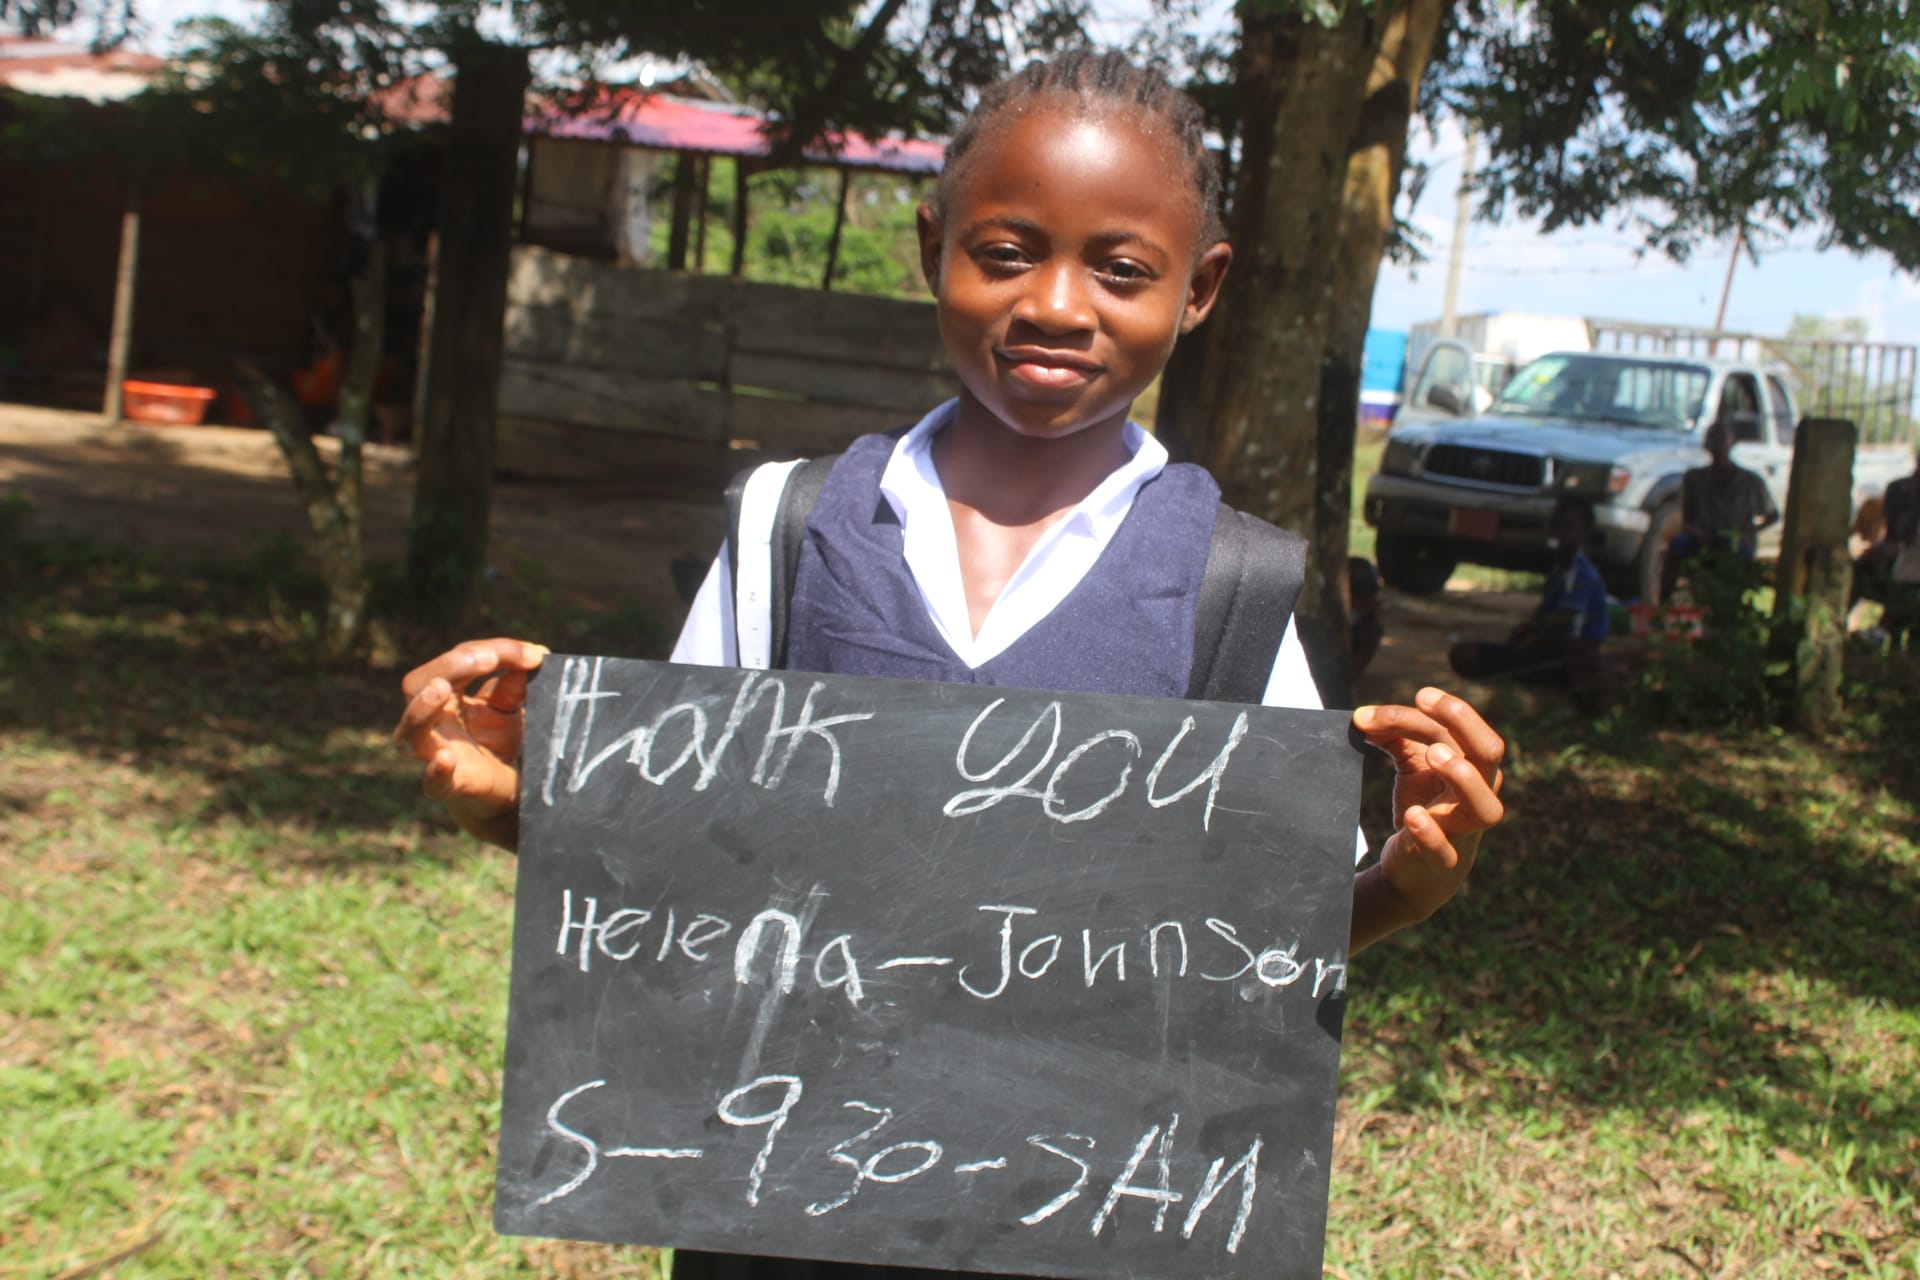 Thank you
Helena-Johnson
S-930-SAN